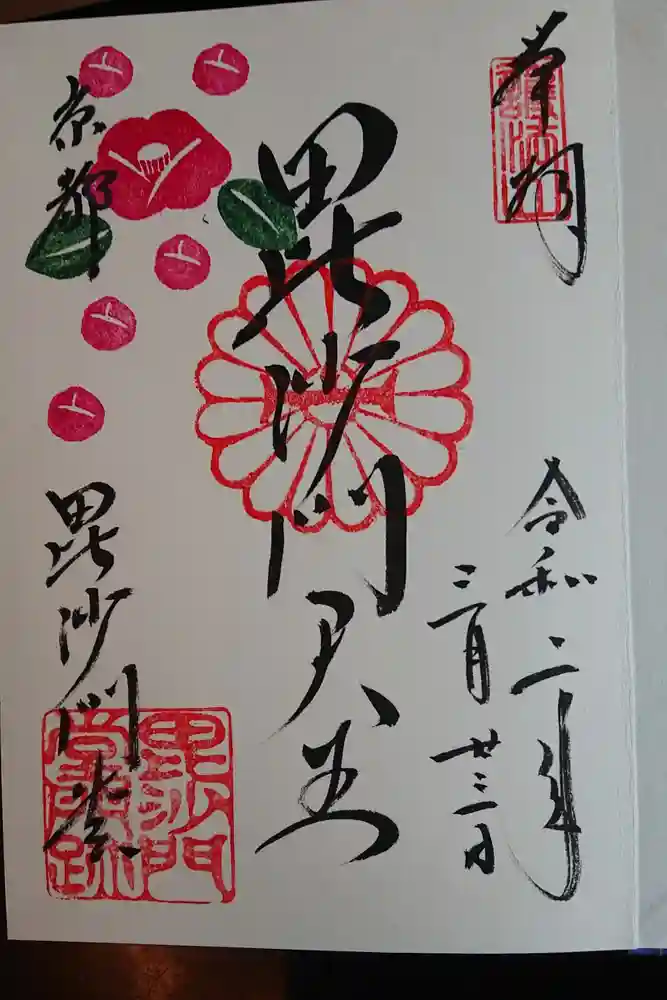 奉拝
令和二年
三月廿三日
毘沙門天王
京都
毘沙門堂
毘沙門
堂門跡